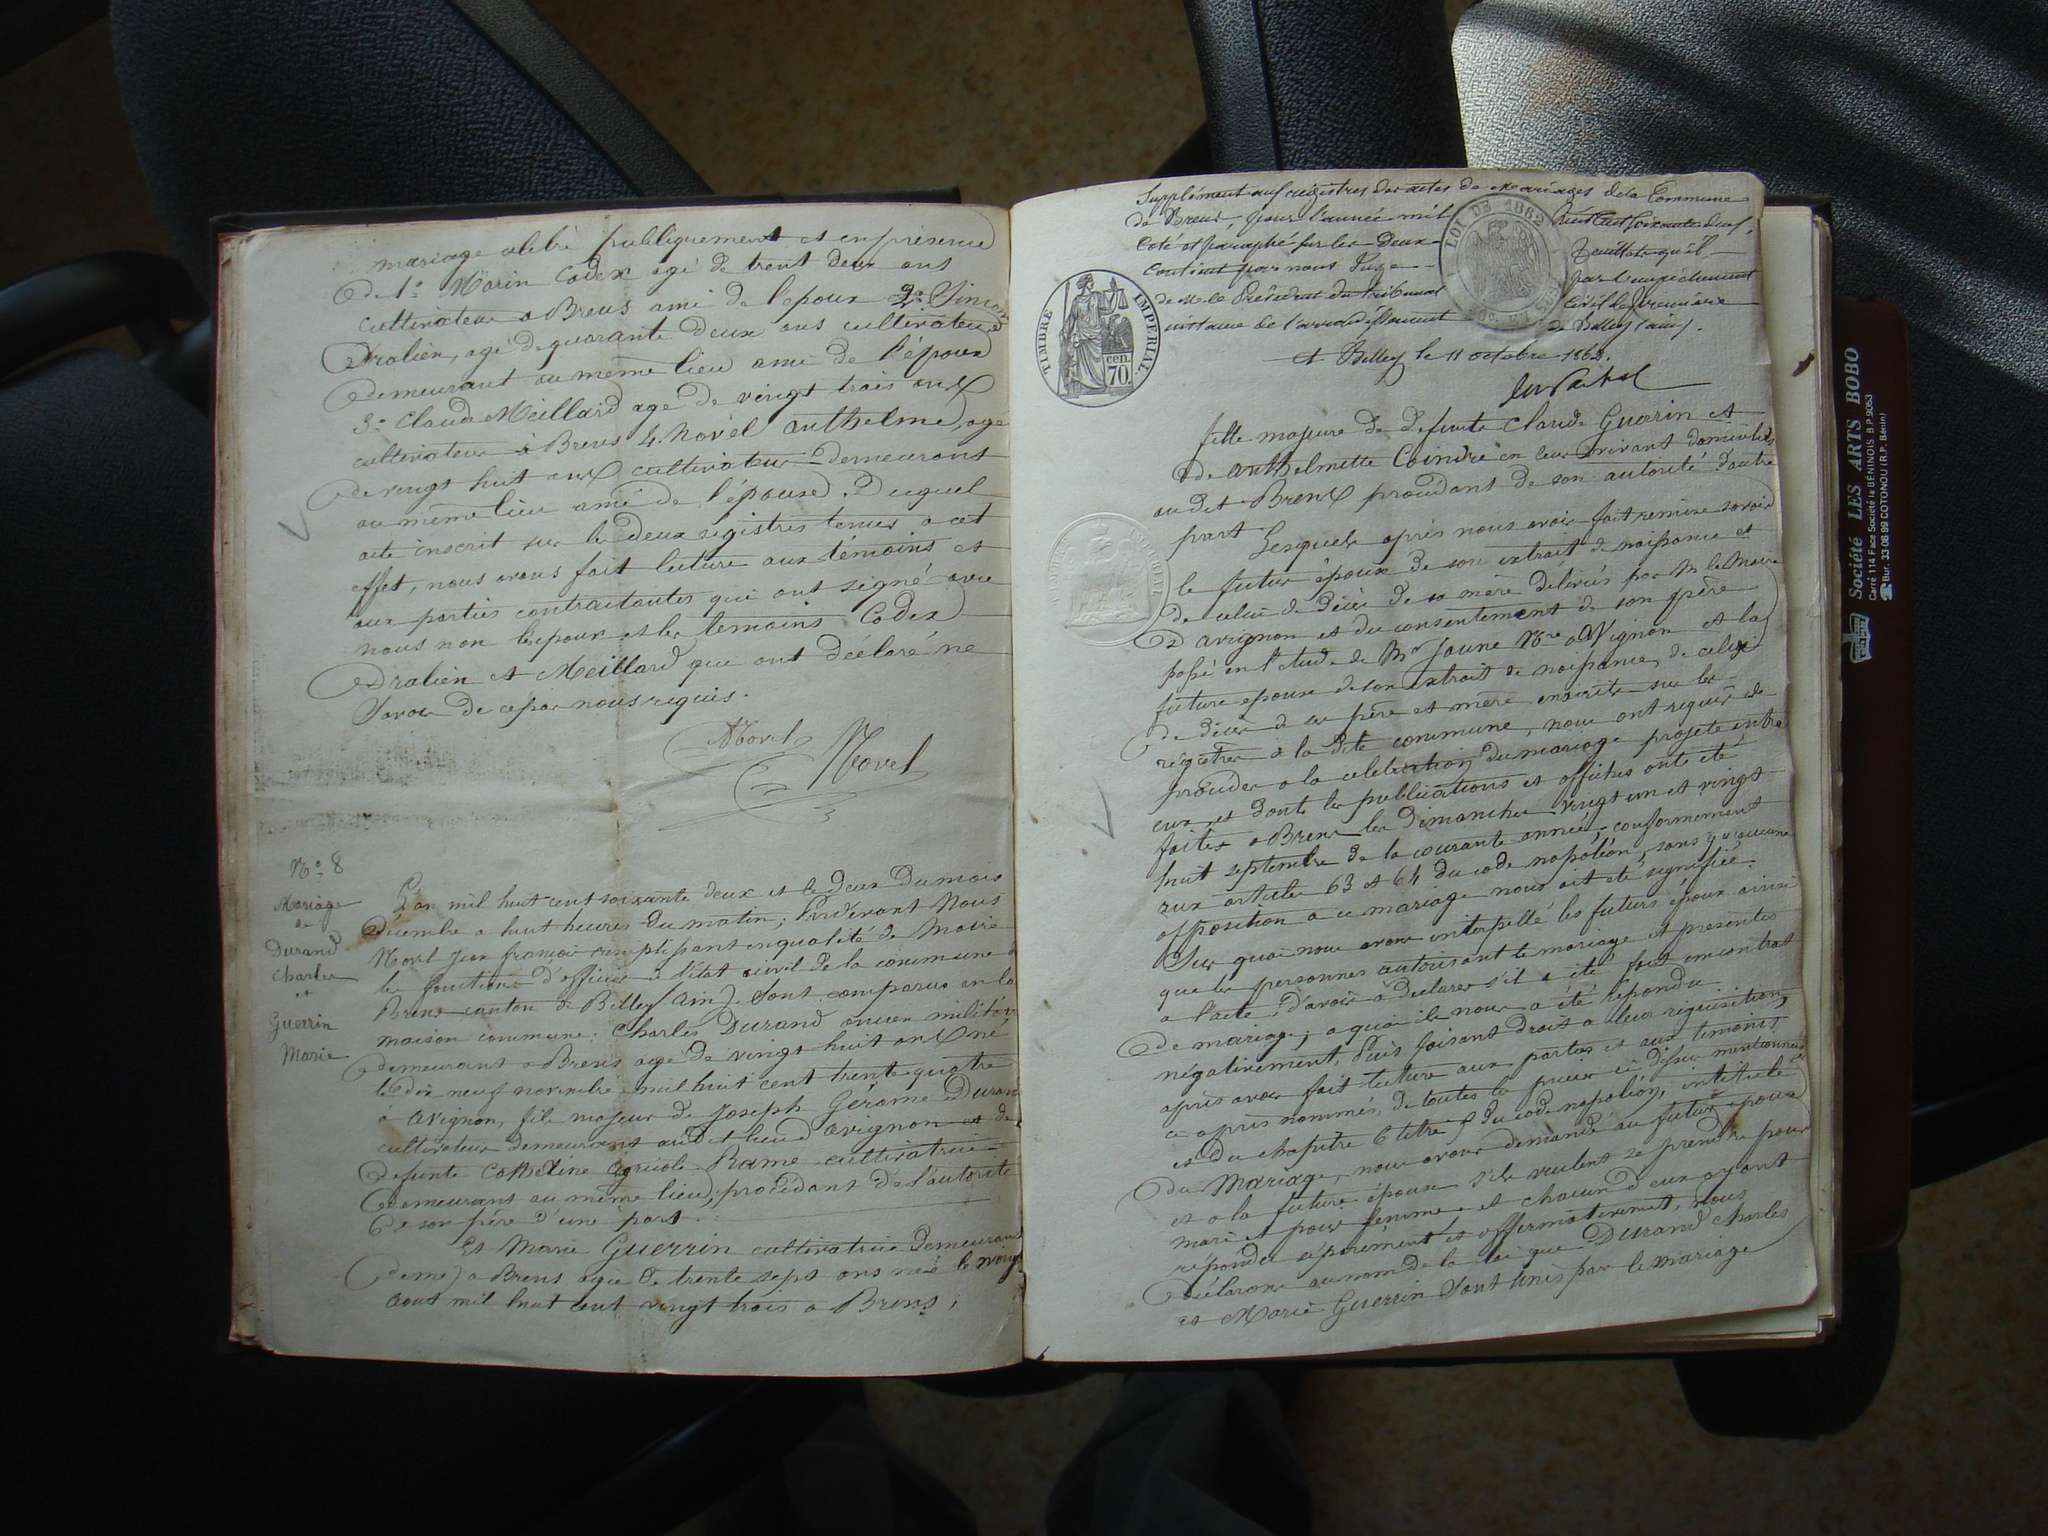 mariage célébré publiquement et en présence
de 1º Morin Codex agé de trent deux ans
cultivateur a Brens ami de l'epoux 2º Simon
Dralien, agé de quarante deux ans cultivateur
demeurant au même lieu ami de l'époux
3º Claude Meillard agé de vingt trois ans
cultivateur à Brens 4 Novel anthelme, age
de vingt huit ans cultivateur demeurans
au même lieu ami de l'épouse. Duquel
acte inscrit sur les deux registres tenus a cet
effet, nous avons fait lecture aux témoins et
aux parties contractantes qui ont signé avec
nous non l'epoux et les temoins Codex
Dralien et Meillard qui ont déclaré ne
savoir de ce par nous requis.
Novel Novel
Nº 8
Mariage
de
Durand
Charles
et
Guerrin
Marie
L'an mil huit cent soixante deux et le deux du mois
décembre a huit heures du matin; Pardevant Nous
Novel Jean françois remplissant en qualité de Maire
les fonctions d'officier de l'état civil de la commune de
Brens canton de Belley (Ain) Sont comparus en la
maison commune: Charles Durand ancien militaire
demeurant a Brens agé de vingt huit ans né
le dix neuf novembre mil huit cent trente quatre
à Avignon, fils majeur de Joseph Gérome Durand
cultivateur demeurant au dit lieu d'avignon et de
defunte agricole Rame cultivatrice
demeurant au même lieu, procédant de l'autorité
de son père d'une part.
Et Marie Guerrin cultivatrice demeurant
a Brens agée de trente sept ans née le vingt
aout mil huit cent vingt trois a Brens;
Supplément aux régistres des actes de Mariages de la Commune
de Brens, pour l'année mil huit cent soixante deux,
Coté et paraphé sur les deux feuillets qu'il
contient par nous Juge par empêchement
de M. le Président du tribunal civil de première
instance de l'arrondissement de Belley (ain).
A Belley le 11 octobre 1862.
LOI DE 1862
TIMBRE IMPERIAL
70 cen.
fille majeure de defunte Claude Guerin et
de anthelmette Coindre en leur vivant domiciliés
au dit Brens procédant de son autorité d'autre
part Lesquels après nous avoir fait remise savoir
le futur époux de son extrait de naissance et
de celui de décès de sa mère délivrés par M le Maire
d'avignon et du consentement de son père
passé en l'étude de Mr Jaune Nre a avignon et la
future epouse de son extrait de naissance, de celui
de décès de ses père et mère inscrits sur les
régistres de la dite commune, nous ont requis de
procéder a la célébration du mariage projeté entre
eux, et dont les publications et affiches ont été
faites a Brens les dimanches vingt un et vingt
huit septembre de la courante année, conformément
aux articles 63 et 64 du code napoléon, sans qu'aucune
opposition a ce mariage nous ait été signifiée.
Sur quoi nous avons interpellé les futurs époux ainsi
que les personnes autorisant le mariage et présentes
a l'acte, d'avoir a declarer s'il a été fait un contrat
de mariage; a quoi ils nous a été répondu
négativement, Puis faisant droit a leur réquisition,
après avoir fait lecture aux parties et aux témoins
ci après nommés, de toutes les pièces ci dessus mentionnées
et du chapitre 6 titre 5 du code napoléon, intitulé
du Mariage, nous avons demandé au futur époux
et a la future épouse s'ils veulent se prendre pour
mari et pour femme et chacun d'eux ayant
répondu séparement et affirmativement, Nous
déclarons au nom de la loi que Durand Charles
et Marie Guerrin Sont unis par le mariage
Société LES ARTS BOBO
Carré 114 Face Société la BÉNINOIS B.P. 9053
☎ Bur. 33-08-99 COTONOU (R.P. Bénin)